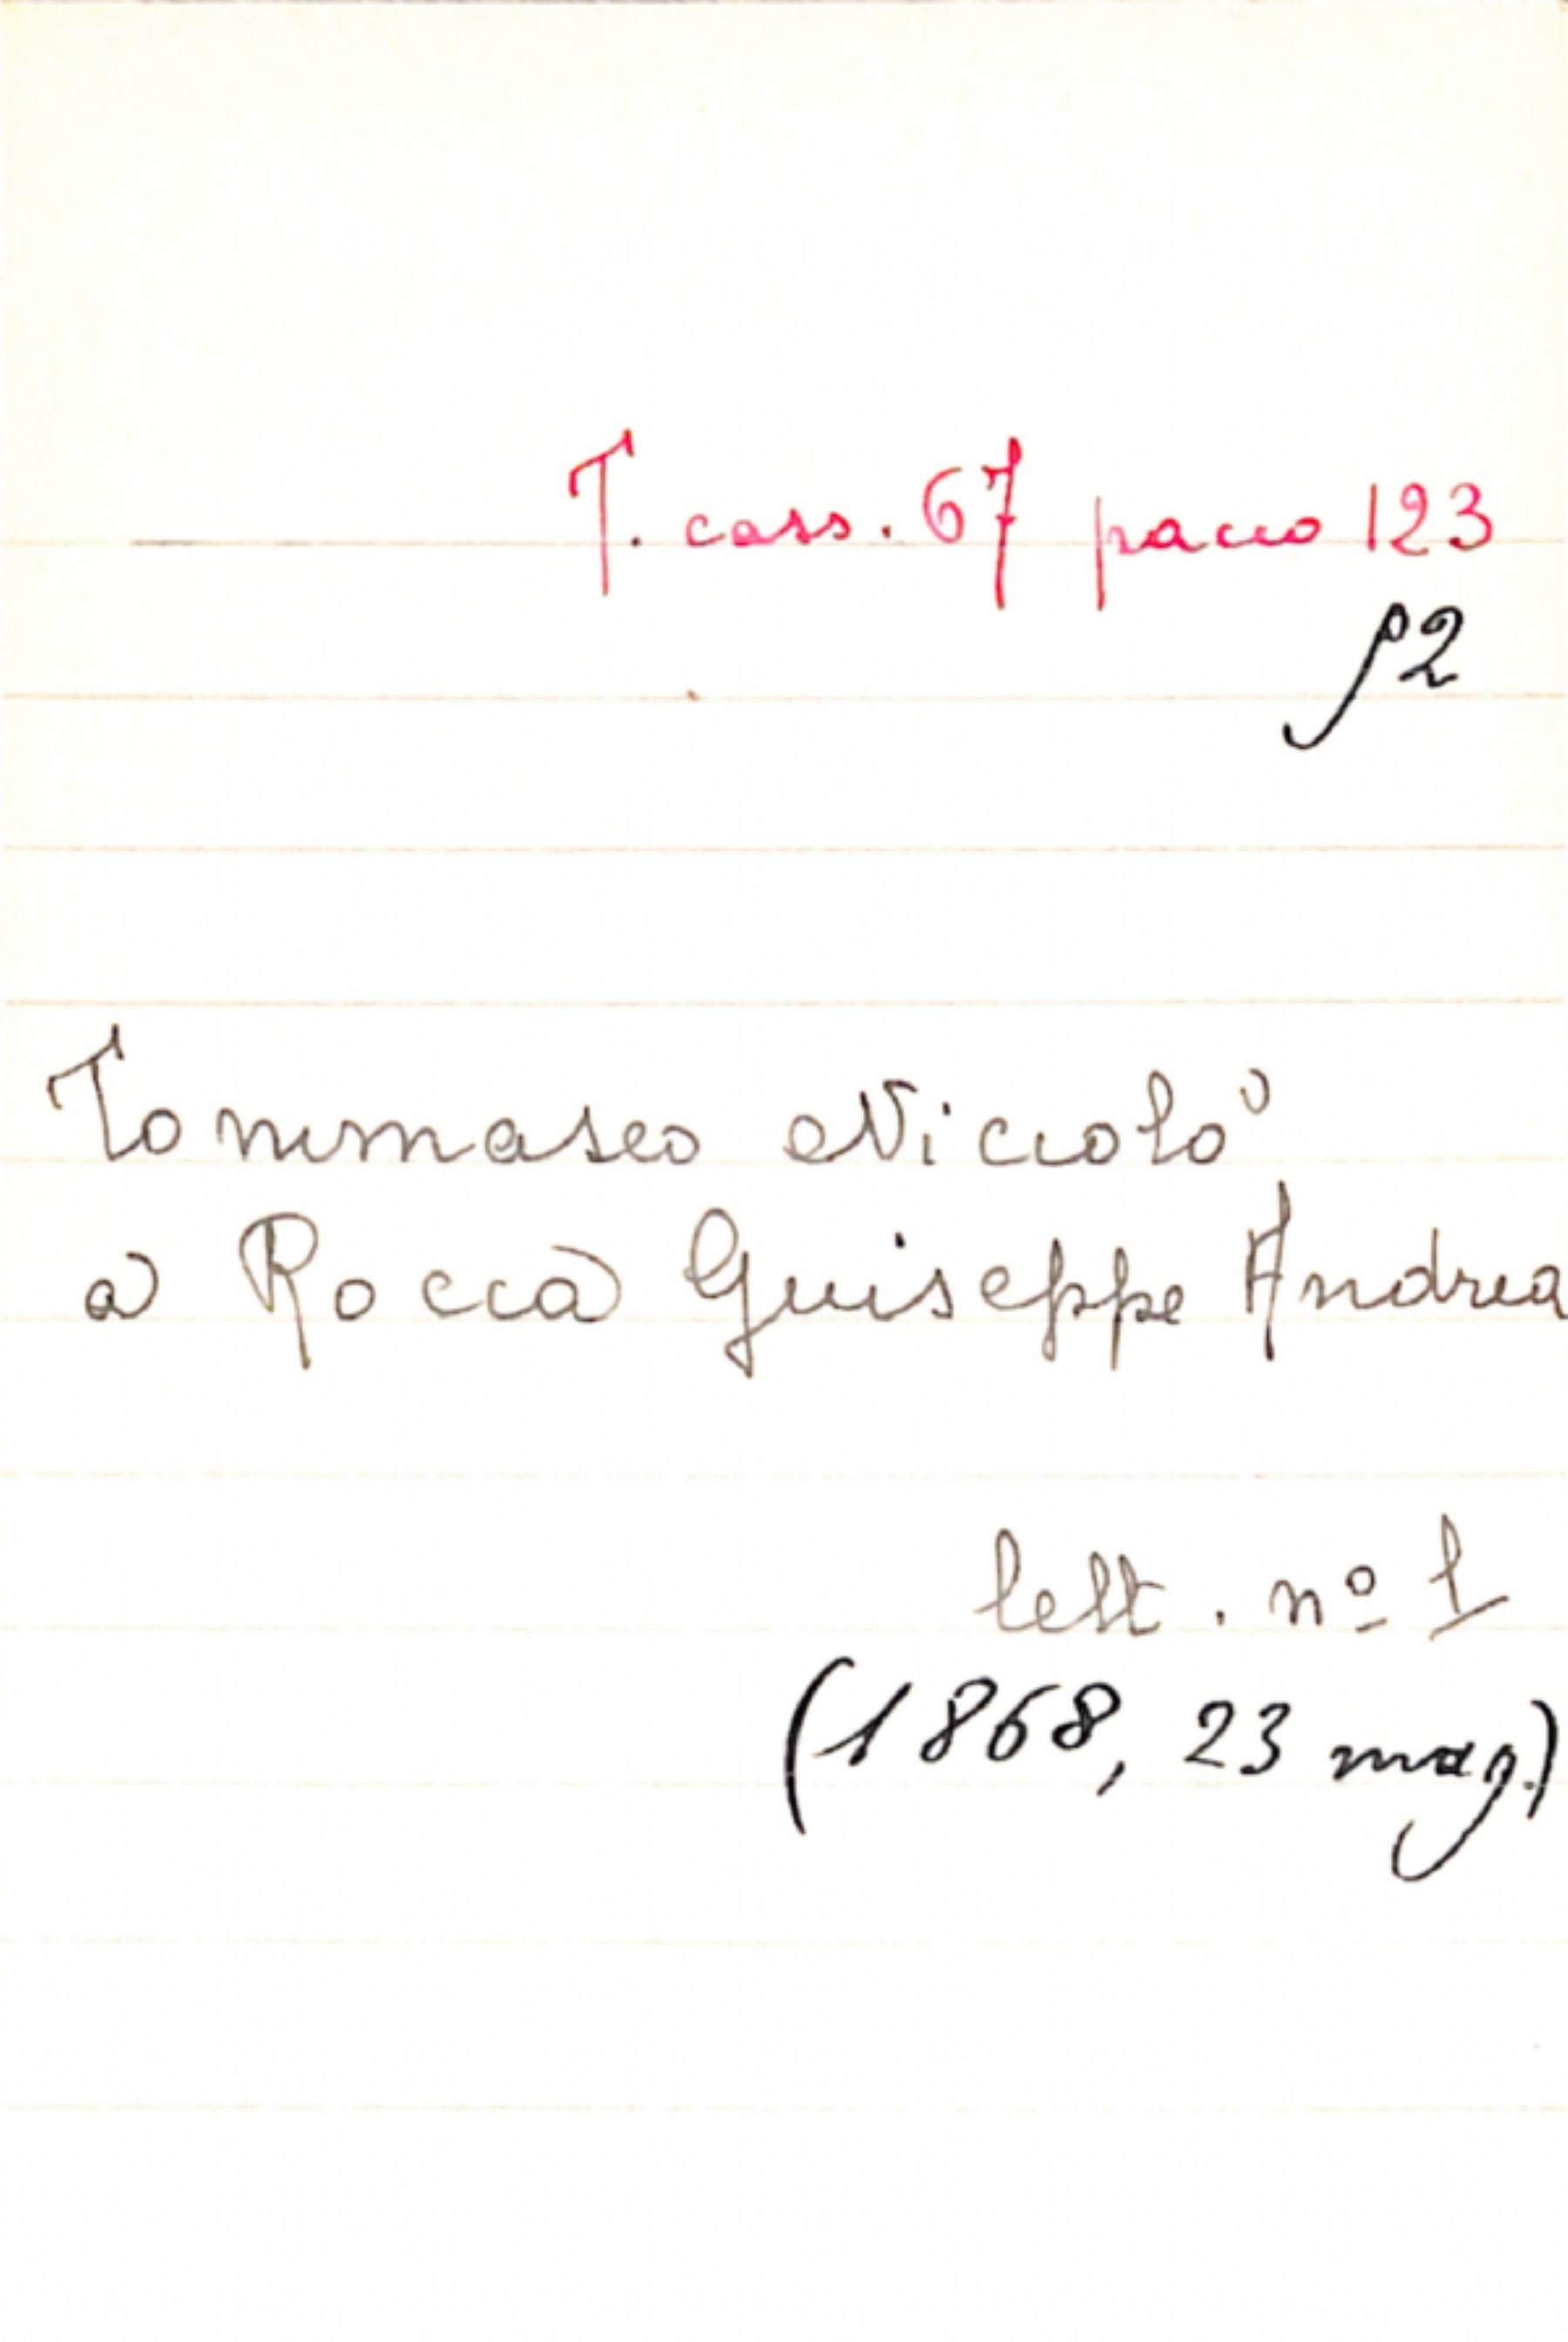 T. cass. 67 pacco 123
, 2
Tommaseo Niccolò
a Rocca Giuseppe Andrea
lett. nº 1
(1868, 23 mag.)